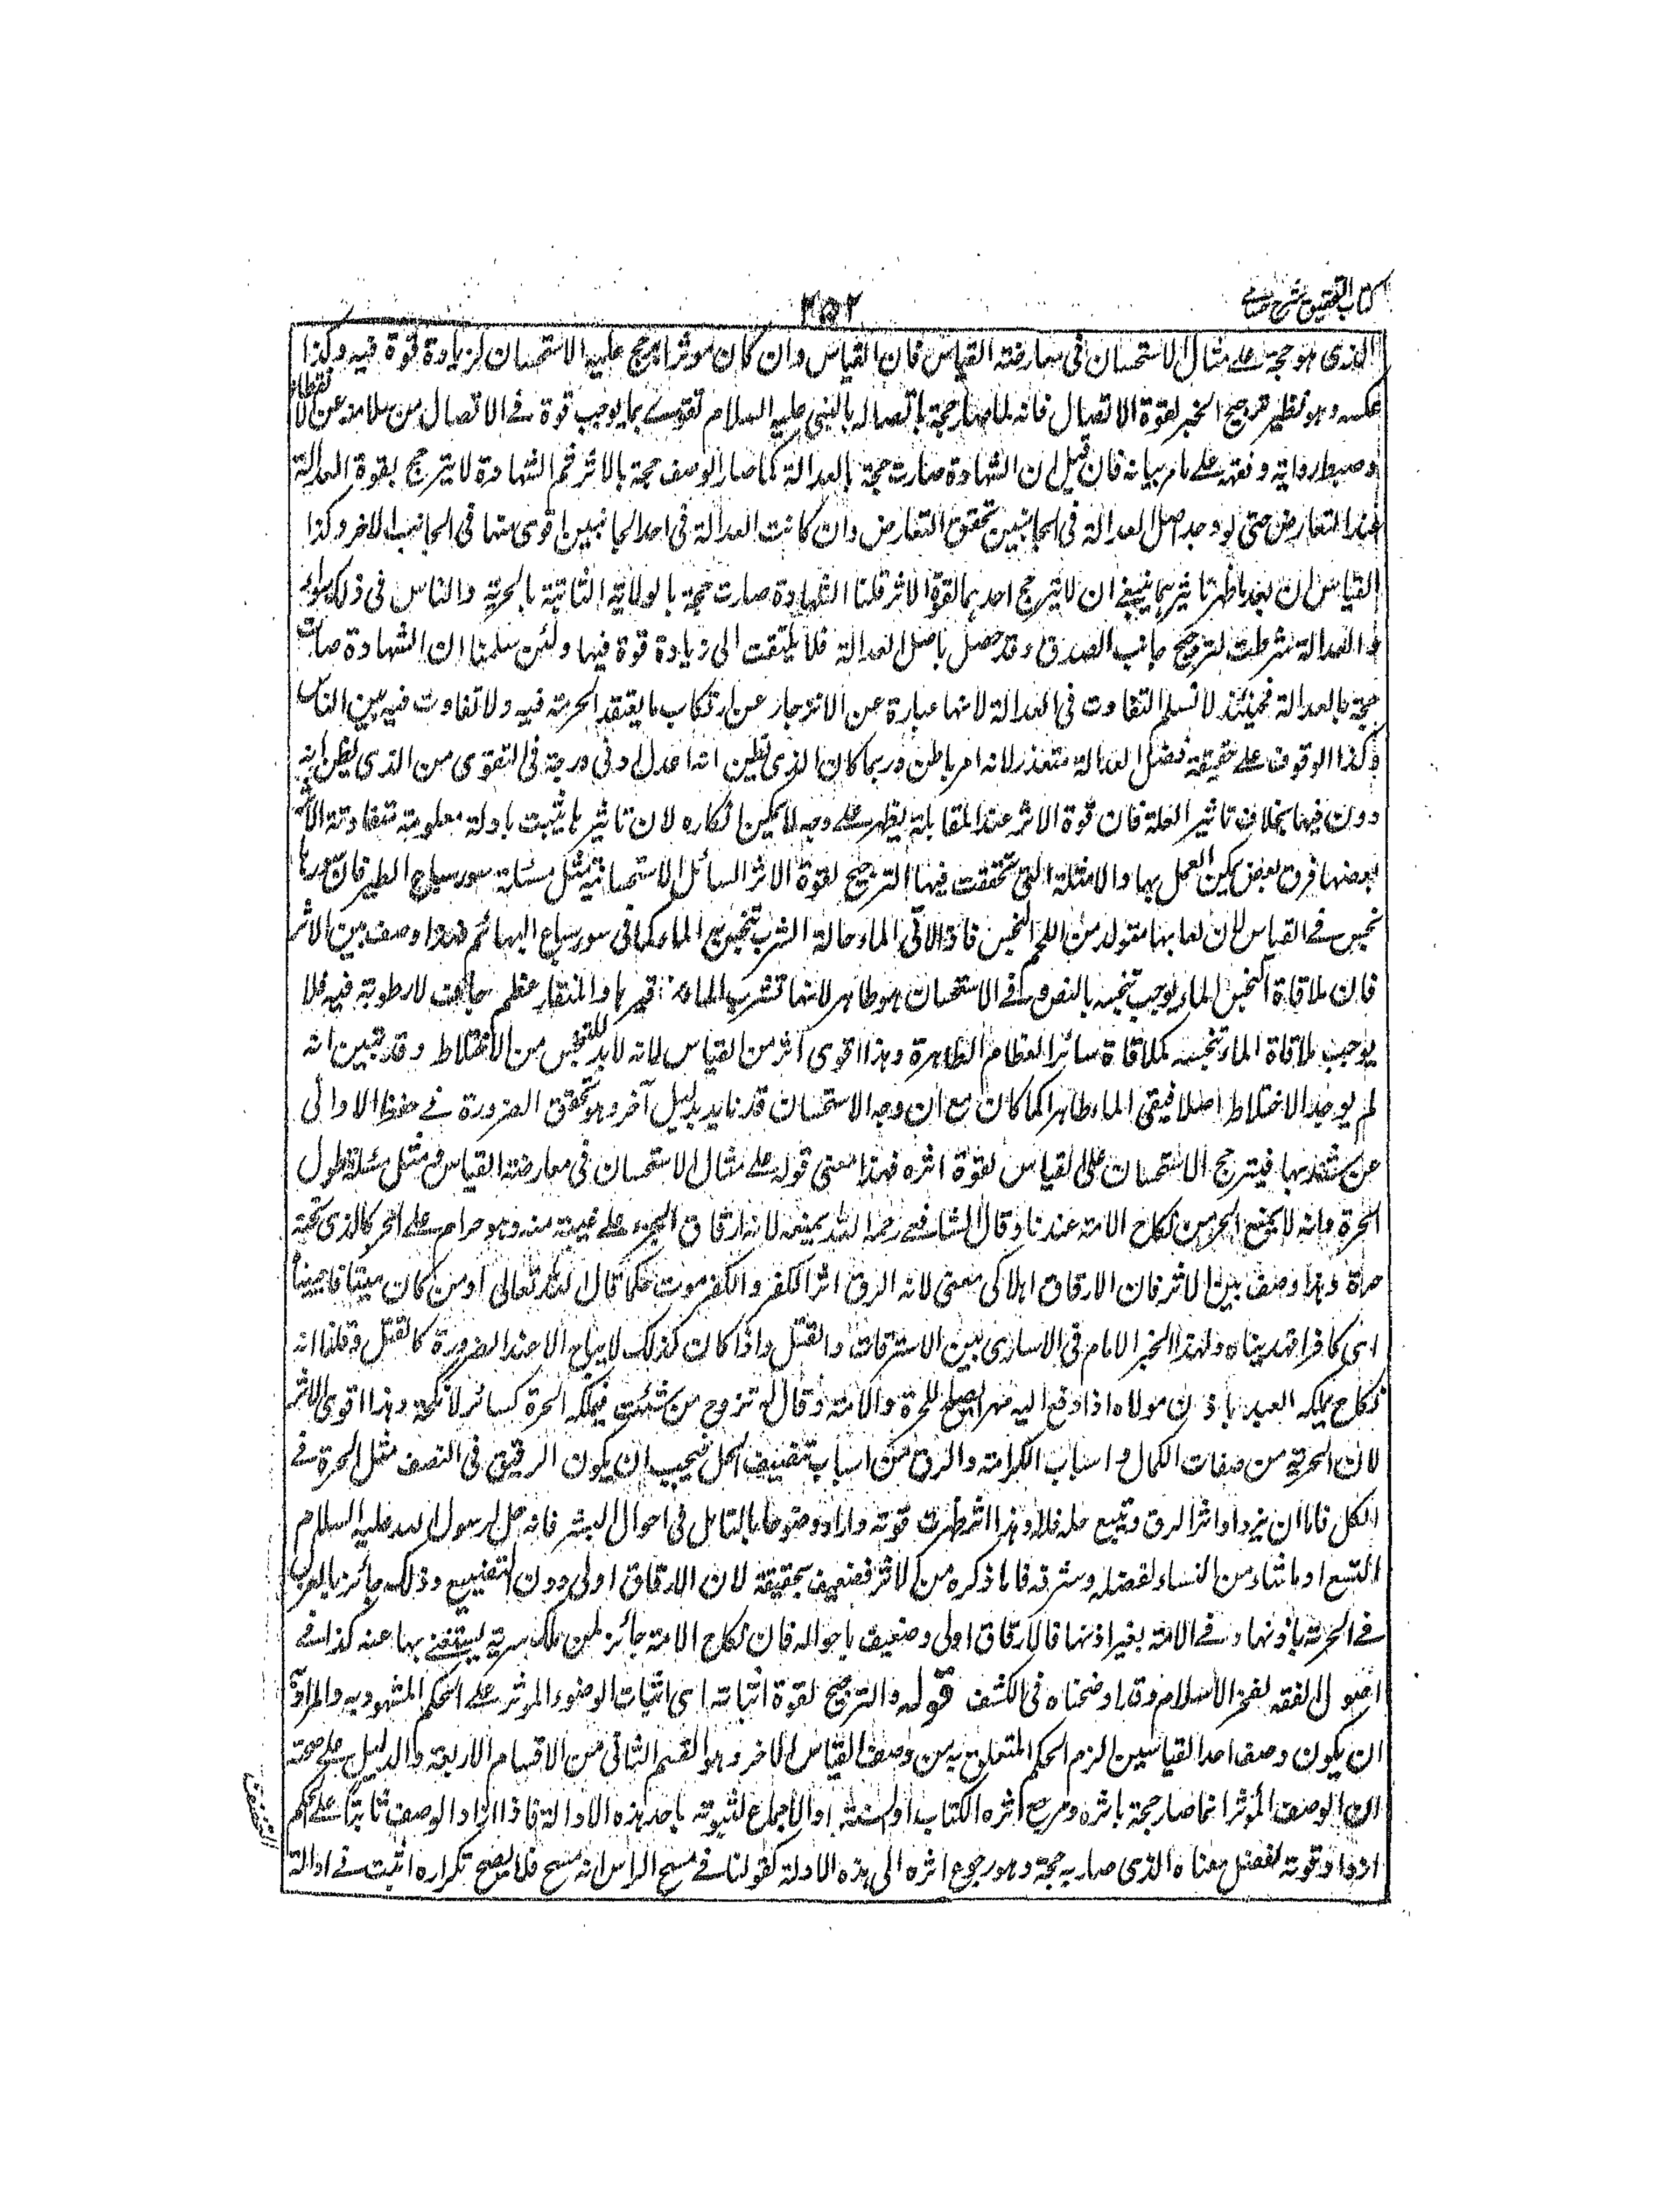 كتاب التحقيق شرح حسامي
٢٥٢
الذى هو حجة على مثال الاستحسان فى معارضة القياس فان القياس وان كان موثرا يرجح عليه الاستحسان لزيادة قوة فيه وكذا
عكسه وهو نظير ترجيح الخبر لقوة الاتصال فانه لما صار حجة باتصاله بالنبى عليه السلام تقوى بما يوجب قوة فى الاتصال من سلامته عن الانقطاع
وضبط راويه وفقهه على ما مر بيانه فان قيل ان الشهادة صارت حجة بالعدالة كما صار الوصف حجة بالاثر ثم الشهادة لا تترجح بقوة العدالة
عند التعارض حتى لو وجد اصل العدالة فى الجانبين تحقق التعارض وان كانت العدالة فى احد الجانبين اقوى منها فى الجانب الاخر وكذا
القياسان بعد ما ظهر تاثيرهما ينبغى ان لا يترجح احدهما لقوة الاثر قلنا الشهادة صارت حجة بالولاية الثابتة بالحرية والناس فى ذلك سواء
والعدالة شرطت لترجيح جانب الصدق وقد حصل باصل العدالة فلا يلتفت الى زيادة قوة فيها ولئن سلمنا ان الشهادة صارت
حجة بالعدالة فحينئذ لا نسلم التفاوت فى العدالة لانها عبارة عن الانزجار عن ارتكاب ما يعتقد الحرمة فيه ولا تفاوت فيه بين الناس
وكذا الوقوف على حقيقة فضل العدالة متعذر لانه امر باطن وربما كان الذى يظن انه اعدل ادنى درجة فى التقوى من الذى يظن انه
دون فيها بخلاف تاثير العلة فان قوة الاثر عند المقابلة يظهر على وجه لا يمكن انكاره لان تاثيرها يثبت بادلة معلومة متفاوتة الاثر
بعضها فوق بعض يمكن العمل بها والامثلة التى تحققت فيها الترجيح لقوة الاثر المسائل الاستحسانية مثل مسئلة سور سباع الطير فان سورها
نجس فى القياس لان لعابها متولد من اللحم النجس فاذا لاقى الماء حالة الشرب تنجس الماء كما فى سور سباع البهائم وهذا وصف بين الاثر
فان ملاقاة النجس الماء يوجب تنجسه بالنص وفى الاستحسان هو طاهر لانها تشرب الماء بمنقيرها والمنقار عظم جاف لا رطوبة فيه فلا
يوجب ملاقاة الماء تنجسه كملاقاة سائر العظام الطاهرة وهذا اقوى اثرا من القياس لانه لا بد للتنجس من الاختلاط وقد تبين انه
لم يوجد الاختلاط اصلا فيبقى الماء طاهرا كما كان مع ان وجه الاستحسان قد تايد بدليل آخر وهو تحقق الضرورة فى حفظ الاوانى
عن مثلها فيترجح الاستحسان على القياس لقوة اثره فهذا معنى قوله على مثال الاستحسان فى معارضة القياس ومثل مسئلة طول
الحرة فانه لا يمنع الحر من نكاح الامة عندنا وقال الشافعى رحمه الله يمنعه لانه ارقاق الجزء على غنية منه وهو حرام على الحر كالذى تحته
حرة وهذا وصف بين الاثر فان الارقاق اهلاك معنى لانه الرق اثر الكفر والكفر موت حكما قال الله تعالى او من كان ميتا فاحييناه
اى كافرا فهديناه ولهذا يخير الامام فى الاسارى بين الاسترقاق والقتل واذا كان كذلك لا يباح الا عند الضرورة كالقتل وقلنا انه
نكاح يملكه العبد باذن مولاه اذا دفع اليه مهرا يصلح للحرة والامة وقال له تزوج من شئت فيملكه الحر كسائر الانكحة وهذا اقوى الاثر
لان الحرية من صفات الكمال واسباب الكرامة والرق من اسباب تنصيف الحل فيجب ان يكون الرقيق فى النصف مثل الحر فى
الكل فاما ان يزداد اثر الرق ويتسع حله فلا وهذا اثر ظهرت قوته وازداد وضوحا بالتامل فى احوال البشر فانه حل لرسول الله عليه السلام
التسع او ما شاء من النساء لفضله وشرفه فاما ما ذكره من الاثر فضعيف بحقيقة لان الارقاق اولى دون التضييع وذلك جائز بالعزل
فى الحرة باذنها وفى الامة بغير اذنها فالارقاق اولى وضعيف باحواله فان نكاح الامة جائز لمن ملك سرية يستغنى بها عنه كذا فى
اصول الفقه لفخر الاسلام وقد اوضحناه فى الكشف قوله والترجيح لقوة اثباته اى اثبات الوصف الموثر على الحكم المشهود به والمراد
ان يكون وصف احد القياسين الزم للحكم المتعلق به من وصف القياس الاخر وهو القسم الثانى من الاقسام الاربعة والدليل على صحته
ان الوصف المؤثر انما صار حجة باثره ومرجع اثره الكتاب او السنة او الاجماع لثبوته باحد هذه الادلة فاذا ازداد الوصف ثباتا على الحكم
ازداد قوته لفضل معناه الذى صار به حجة وهو رجوع اثره الى هذه الادلة كقولنا فى مسح الراس انه مسح فلا يصح تكراره اثبت فى دلالة
التخفيف